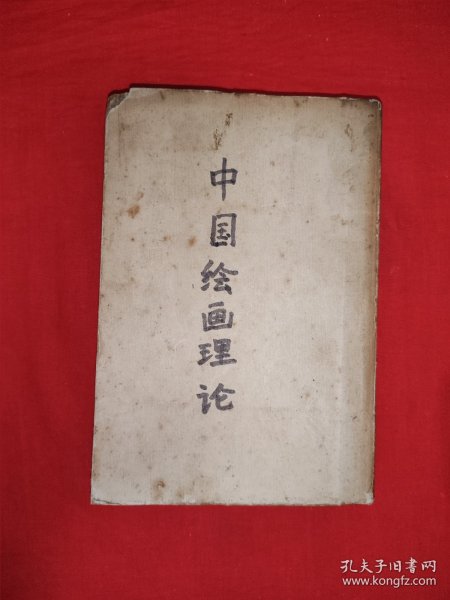 中国绘画理论
孔夫子旧书网
www.kongfz.com